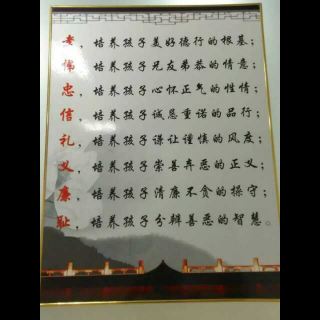 孝，培养孩子美好德行的根基；
悌，培养孩子兄友弟恭的情意；
忠，培养孩子心怀正气的性情；
信，培养孩子诚恳重诺的品行；
礼，培养孩子谦让谨慎的风度；
义，培养孩子崇善弃恶的正义；
廉，培养孩子清廉不贪的操守；
耻，培养孩子分辨善恶的智慧。